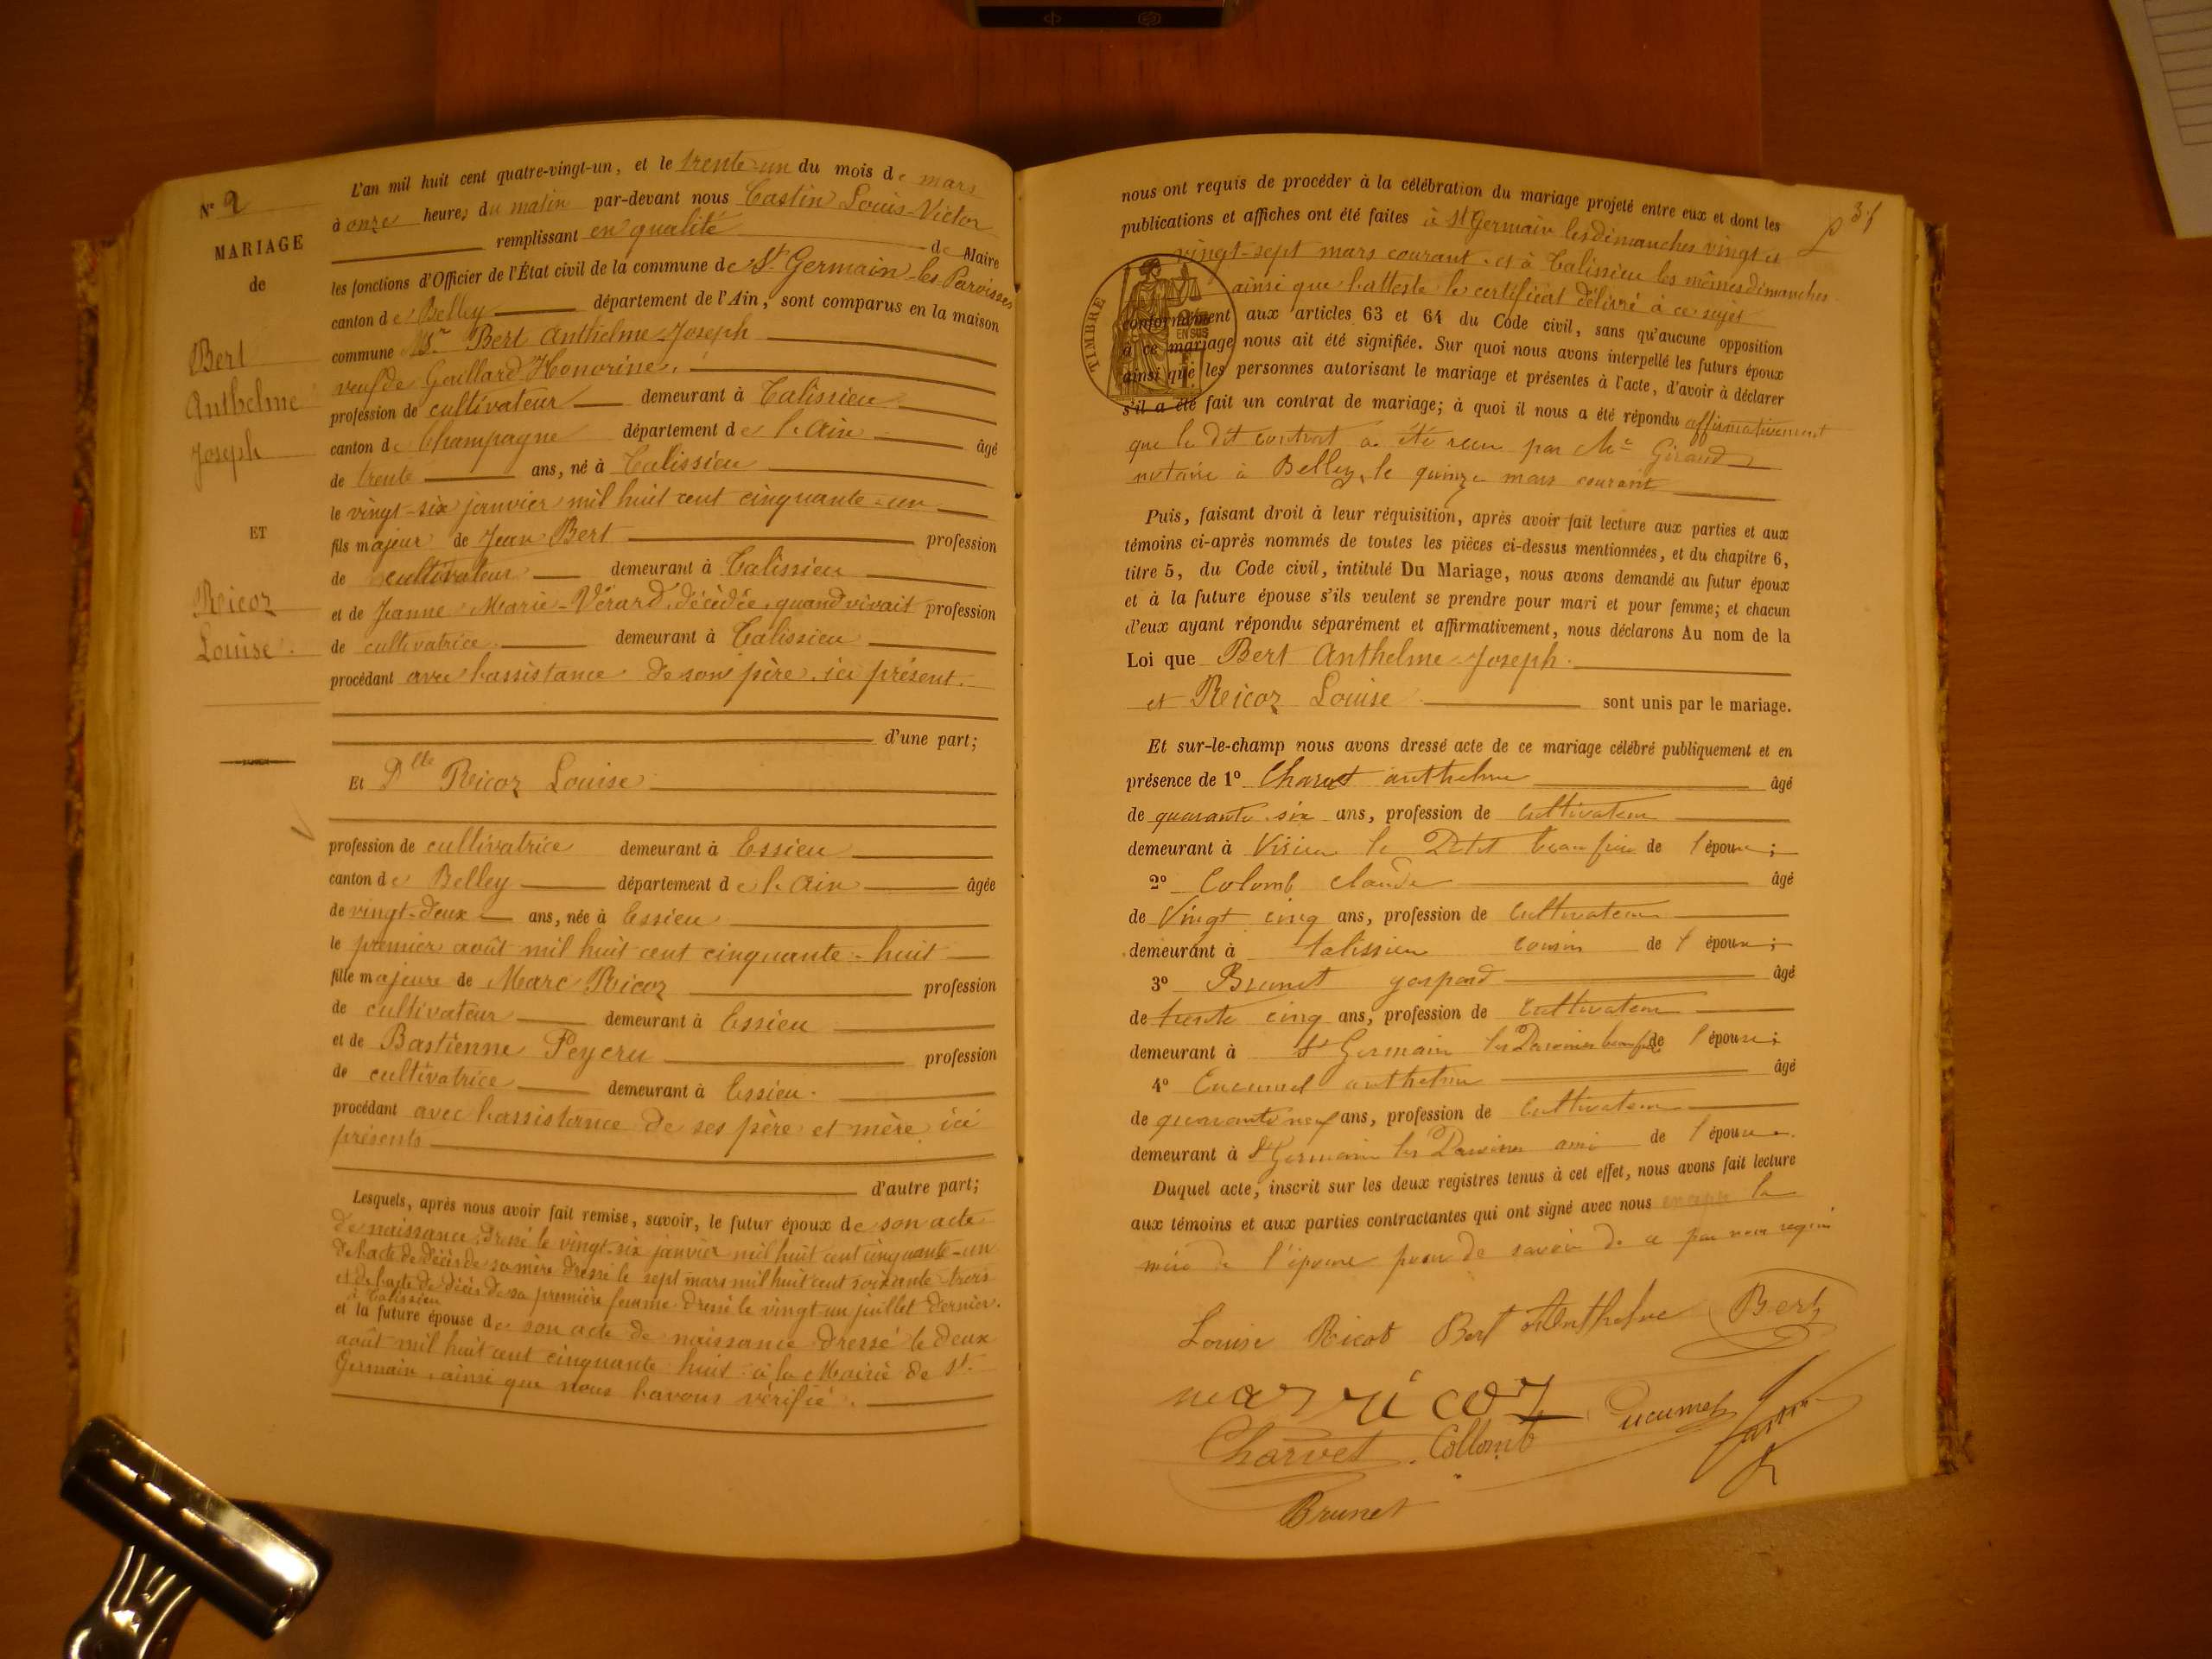 N° 2
MARIAGE
de
Bert
Anthelme
Joseph
ET
Ricoz
Louise.
L'an mil huit cent quatre-vingt-un, et le trente-un du mois de mars
à onze heures du matin par-devant nous Castin Louis-Victor
remplissant en qualité de Maire
les fonctions d'Officier de l'État civil de la commune de St Germain-les-Paroisses
canton de Belley département de l'Ain, sont comparus en la maison
commune Mr Bert Anthelme-Joseph
veuf de Gaillard Honorine,
profession de cultivateur demeurant à Talissieu
canton de Champagne département de l'Ain âgé
de trente ans, né à Talissieu
le vingt-six janvier mil huit cent cinquante-un
fils majeur de Jean Bert profession
de cultivateur demeurant à Talissieu
et de Jeanne Marie-Vérard, décédée, quand vivait profession
de cultivatrice demeurant à Talissieu
procédant avec l'assistance de son père, ici présent.
d'une part;
Et Dlle Ricoz Louise
profession de cultivatrice demeurant à Essieu
canton de Belley département de l'Ain âgée
de vingt-deux ans, née à Essieu
le premier août mil huit cent cinquante-huit
fille majeure de Marc Ricoz profession
de cultivateur demeurant à Essieu
et de Bastienne Peycru profession
de cultivatrice demeurant à Essieu.
procédant avec l'assistance de ses père et mère ici
présents
d'autre part;
Lesquels, après nous avoir fait remise, savoir, le futur époux de son acte
de naissance, dressé le vingt-six janvier mil huit cent cinquante-un
de l'acte de décès de sa mère dressé le sept mars mil huit cent soixante trois
et de l'acte de décès de sa première femme dressé le vingt un juillet dernier.
à Talissieu
et la future épouse de son acte de naissance dressé le deux
août mil huit cent cinquante huit à la Mairie de St.
Germain, ainsi que nous l'avons vérifié.
31
nous ont requis de procéder à la célébration du mariage projeté entre eux et dont les
publications et affiches ont été faites à St Germain les dimanches vingt et
vingt-sept mars courant et à Talissieu les mêmes dimanches
ainsi que l'atteste le certificat délivré à ce sujet
TIMBRE
EN SUS
conformément aux articles 63 et 64 du Code civil, sans qu'aucune opposition
à ce mariage nous ait été signifiée. Sur quoi nous avons interpellé les futurs époux
ainsi que les personnes autorisant le mariage et présentes à l'acte, d'avoir à déclarer
s'il a été fait un contrat de mariage; à quoi il nous a été répondu affirmativement
que le dit contrat a été reçu par Me Giraud
notaire à Belley, le quinze mars courant
Puis, faisant droit à leur réquisition, après avoir fait lecture aux parties et aux
témoins ci-après nommés de toutes les pièces ci-dessus mentionnées, et du chapitre 6,
titre 5, du Code civil, intitulé Du Mariage, nous avons demandé au futur époux
et à la future épouse s'ils veulent se prendre pour mari et pour femme; et chacun
d'eux ayant répondu séparément et affirmativement, nous déclarons Au nom de la
Loi que Bert Anthelme-Joseph.
et Ricoz Louise sont unis par le mariage.
Et sur-le-champ nous avons dressé acte de ce mariage célébré publiquement et en
présence de 1° Charvet anthelme âgé
de quarante six ans, profession de Cultivateur
demeurant à Virieu le Petit beau frère de l'époux;
2° Colomb claude âgé
de Vingt cinq ans, profession de Cultivateur
demeurant à talissieu cousin de l'époux;
3° Brunet gaspard âgé
de trente cinq ans, profession de Cultivateur
demeurant à St Germain les Paroisses beau f. de l'épouse;
4° Cucumel anthelme âgé
de quarante neuf ans, profession de Cultivateur
demeurant à St Germain les Paroisses ami de l'épouse.
Duquel acte, inscrit sur les deux registres tenus à cet effet, nous avons fait lecture
aux témoins et aux parties contractantes qui ont signé avec nous excepté la
mère de l'épouse pour de savoir de ce par nous requis
Louise Ricot Bert Anthelme Bert
marc ricoz Cucumel Castin
Charvet Collomb
Brunet